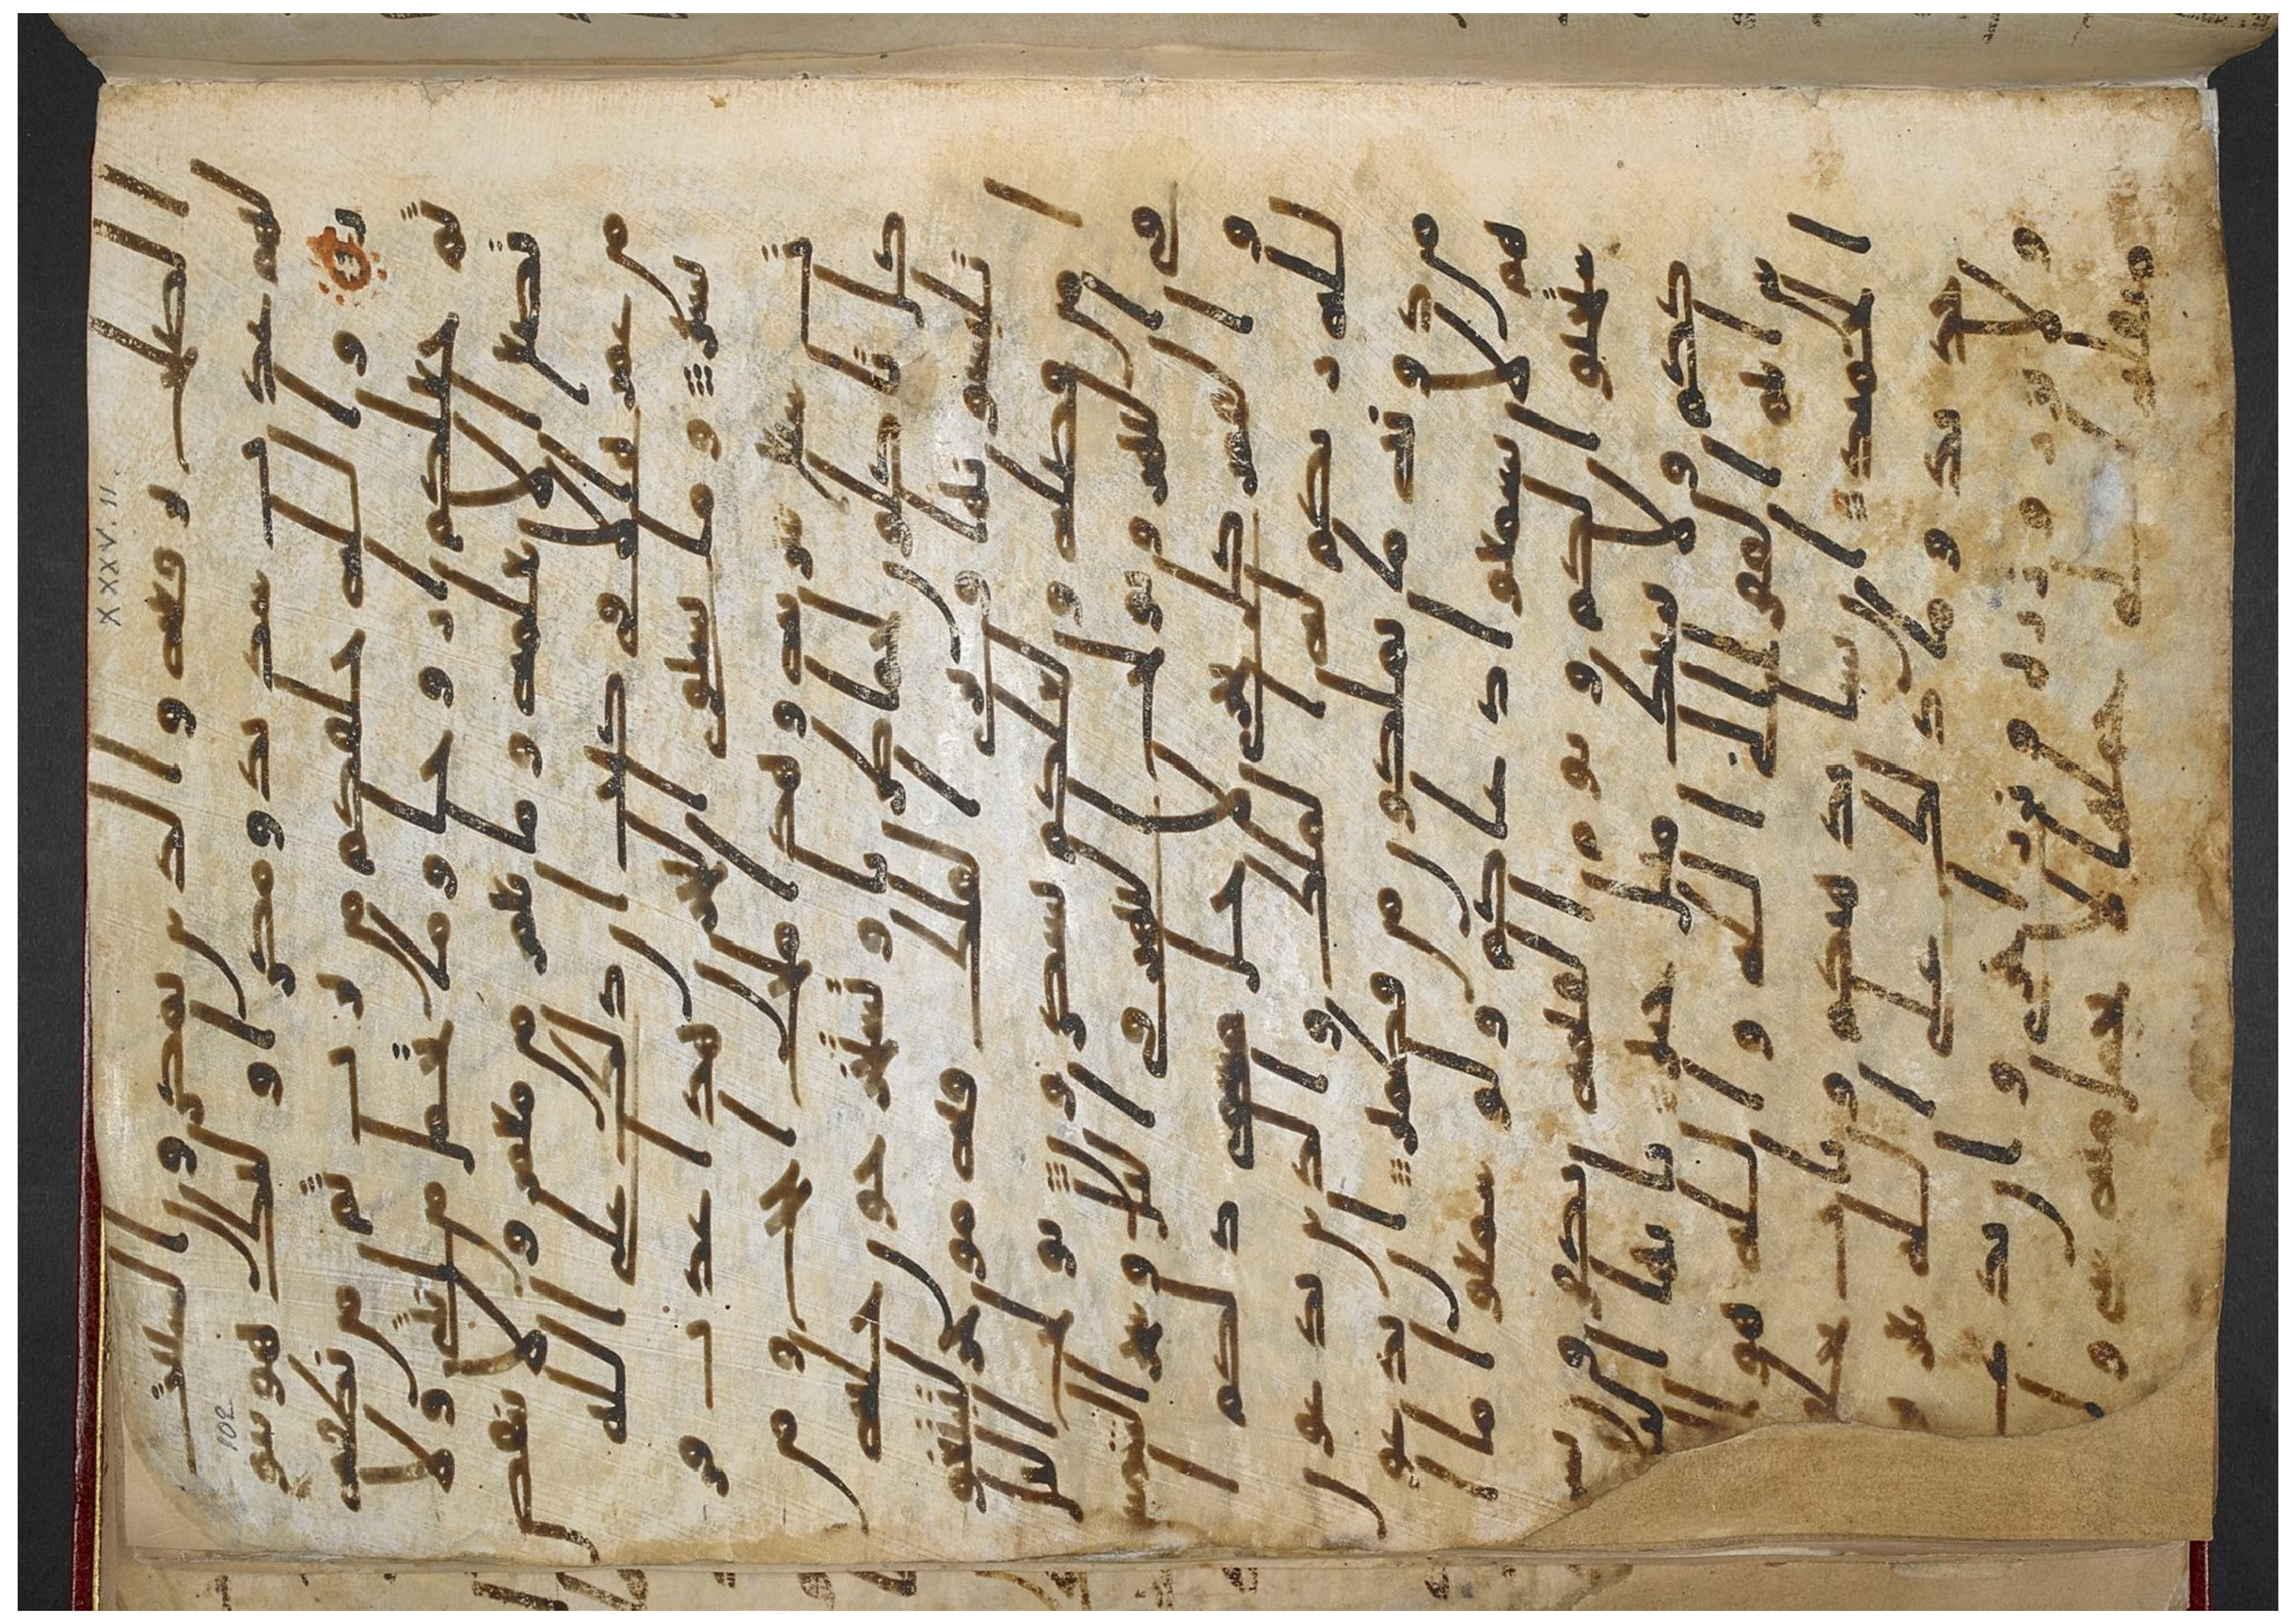 الصلح ير فعه و الذ ين يمكر و ن السيا ت
لهم عذ ا ب شد يد و مكر ا و لئك هو يبو
ر و ا لله خلقكم من تر ا ب ثم من نطفة
ثم جعلكم ا ز و جا و ما تحمل من ا نثى و لا
تضع ا لا بعلمه و ما يعمر من معمر و لا ينقص
من عمر ه ا لا في كتب ا ن ذ لك على ا لله
يسير و ما يستو ي ا لبحر ن هذ ا عذ ب فر
ا ت سا ئغ شر ا به و هذ ا ملح ا جا ج و من
كل تا كلو ن لحما طر يا و تستخر جو ن حلية
تلبسو نها و تر ى ا لفلك فيه مو ا خر لتبتغو ا
من فضله و لعلكم تشكر و ن يو لج ا ليل
في ا لنها ر و يو لج ا لنها ر في ا ليل و سخر ا لشمس
و ا لقمر كل يجر ي لا جل مسمى ذ لكم ا
لله ر بكم له ا لملك و ا لذ ين تد عو ن
من د و نه ما يملكو ن من قطمير ا ن تد عو
هم لا يسمعو ا د عا كم و لو سمعو ا ما ا
ستجبو ا لكم و يو م ا لقيمة يكفر و ن بشر
ككم و لا ينبئك مثل خبير يا يها ا لنا س
ا نتم ا لفقر ا ا لى ا لله و ا لله هو ا
لغني ا لحميد ا ن يشا يذ هبكم و يا ت بخلق
جد يد و ما ذ لك على ا لله بعز يز
و لا تز ر و ا ز ر ة و ز ر ا خر ى و ا ن تد ع
مثقلة ا لى حملها لا يحمل منه شي و
XXXV. 11.
102